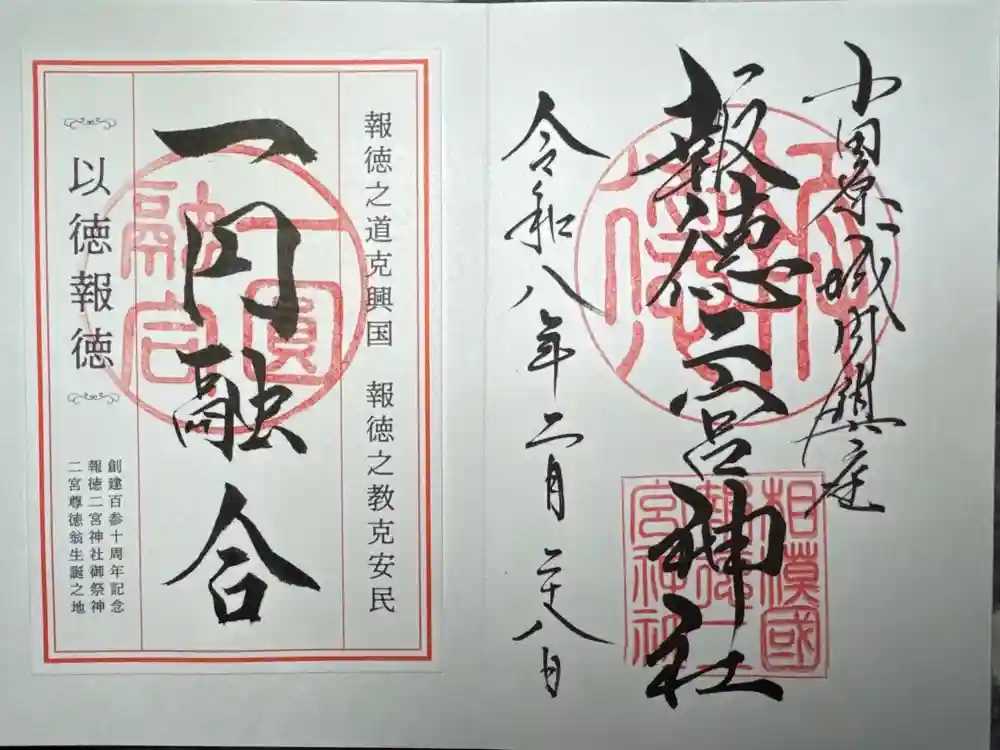 小田原城内鎮座
報徳二宮神社
令和八年二月二十八日
相模國
報徳二
宮神社
報徳之道克興国 報徳之教克安民
一円融合
一圓
融合
以徳報徳
創建百参十周年記念
報徳二宮神社御祭神
二宮尊徳翁生誕之地